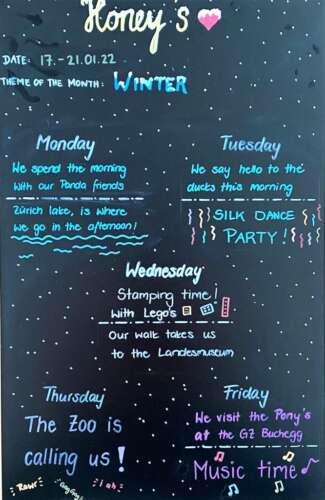 Honey's
DATE: 17. - 21.01.22
THEME OF THE MONTH: WINTER
Monday
We spend the morning
with our Panda friends
Zürich lake, is where
we go in the afternoon!
Tuesday
We say hello to the
ducks this morning
SILK DANCE
PARTY!
Wednesday
Stamping time!
with Lego's
Our walk takes us
to the Landesmuseum
Thursday
The Zoo is
calling us!
Rawr
iah
Friday
We visit the Pony's
at the GZ Buchegg
Music time